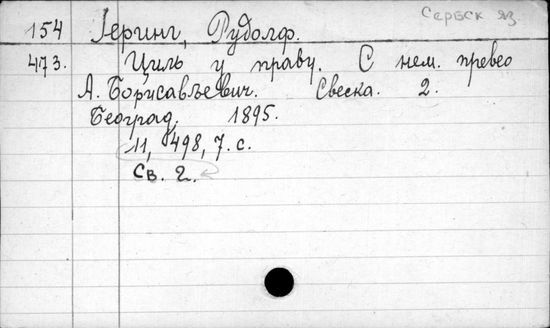 Сербск яз.
154 Јеринг, Рудолф.
473. Циль у праву. С нем. превео
А. Борисављевич. Свеска. 2.
Београд. 1895.
11, 498, 7. с.
Св. 2.